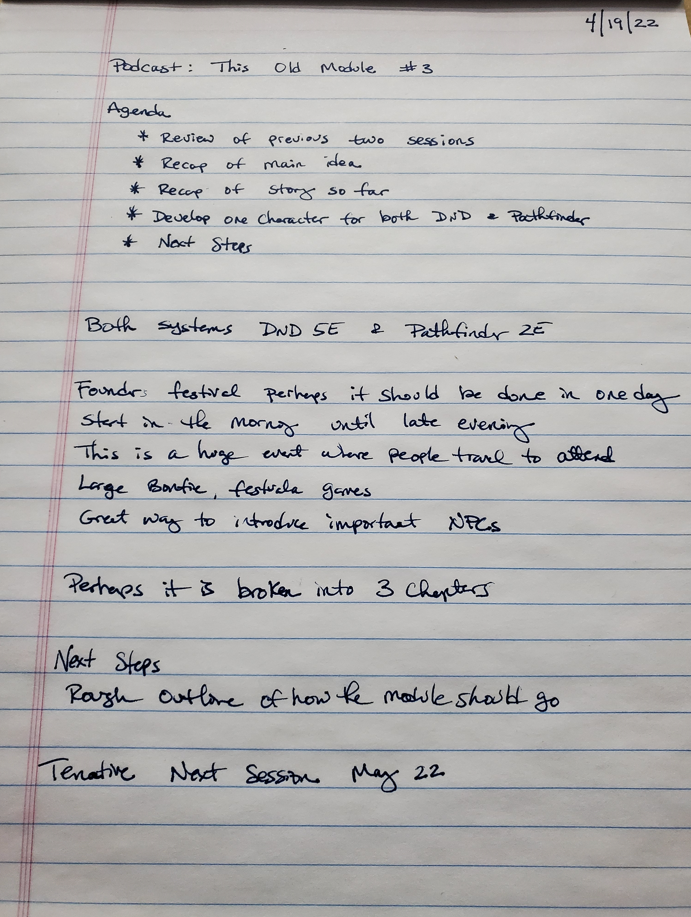 4/19/22
Podcast: This Old Module #3
Agenda
* Review of previous two sessions
* Recap of main idea
* Recap of story so far
* Develop one character for both DND & Pathfinder
* Next Steps
Both systems DND 5E & Pathfinder 2E
Founders festival perhaps it should be done in one day
Start in the morning until late evening
This is a huge event where people travel to attend
Large Bonfire, festivala games
Great way to introduce important NPCs
Perhaps it is broken into 3 Chapters
Next Steps
Rough outline of how the module should go
Tenative Next Session May 22